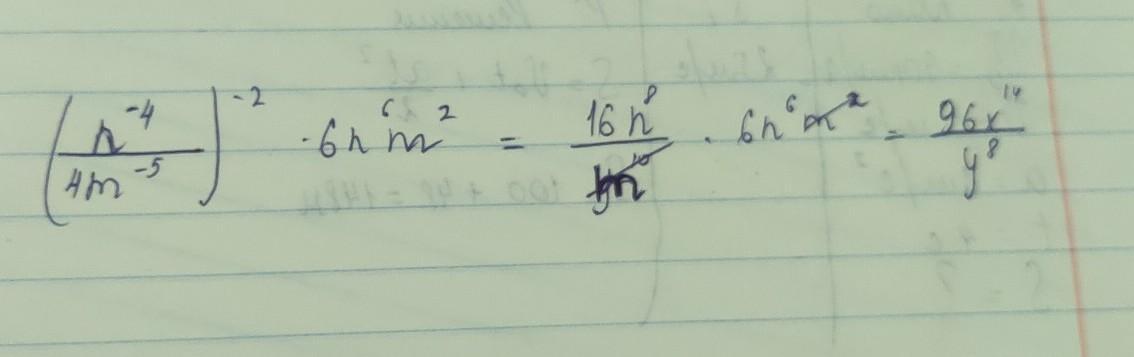 (n⁻⁴/4m⁻⁵)⁻² · 6n⁶m² = 16n⁸/m¹⁰ · 6n⁶m² = 96x¹⁴/y⁸